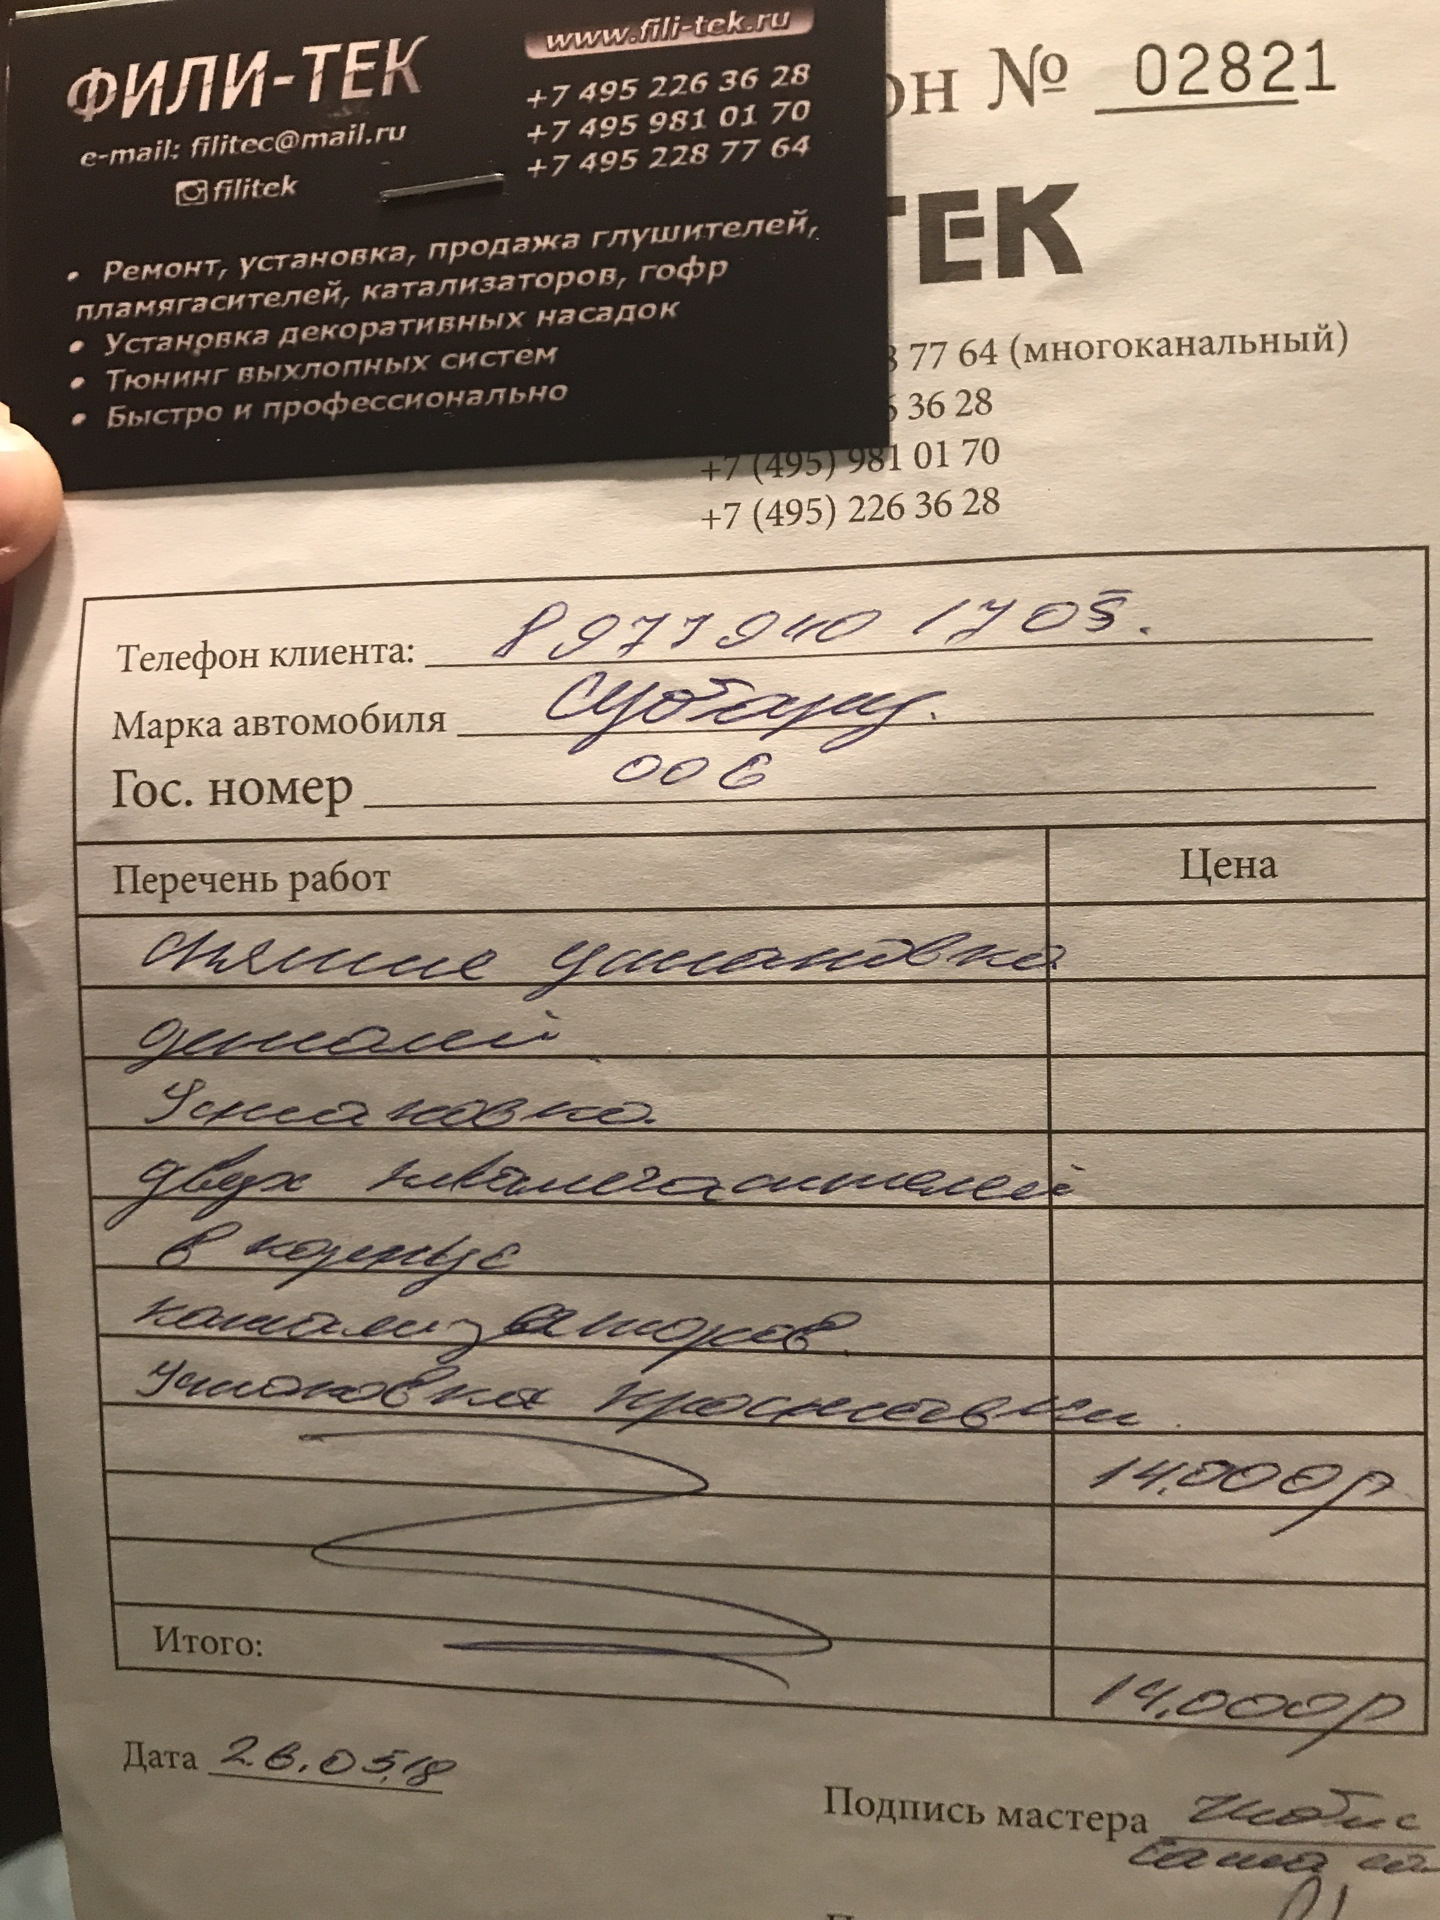 ФИЛИ-ТЕК
e-mail: filitec@mail.ru
filitek
www.fili-tek.ru
+7 495 226 36 28
+7 495 981 01 70
+7 495 228 77 64
• Ремонт, установка, продажа глушителей,
пламягасителей, катализаторов, гофр
• Установка декоративных насадок
• Тюнинг выхлопных систем
• Быстро и профессионально
он № 02821
ТЕК
8 77 64 (многоканальный)
6 36 28
+7 (495) 981 01 70
+7 (495) 226 36 28
Телефон клиента: 8 977 940 1705.
Марка автомобиля Субару.
Гос. номер 006
Перечень работ Цена
снятие установка
деталей
Установка
двух пламегасителей
в корпус
катализаторов.
установка проставки.
14.000р
Итого: 14.000р
Дата 26.05.18
Подпись мастера